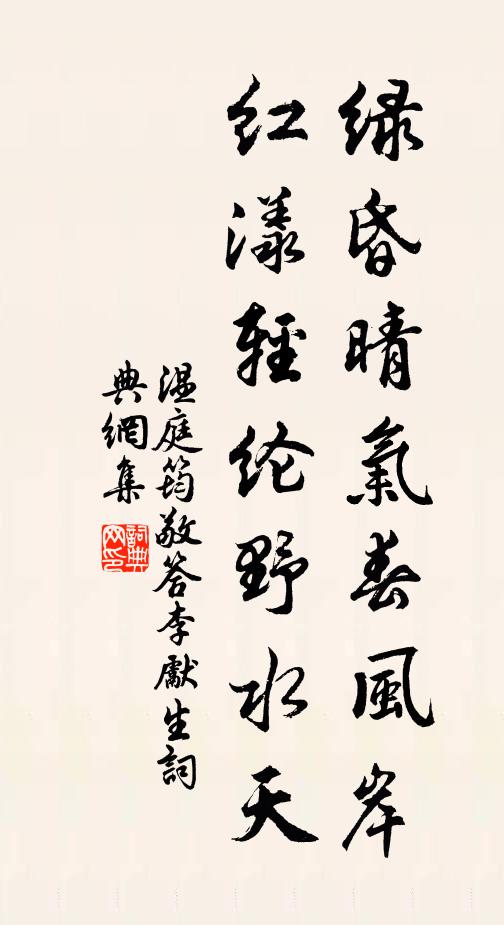 绿昏晴氣春風岸
红漾輕纶野水天
温庭筠敬答李獻生詞
典網集
詞典網印